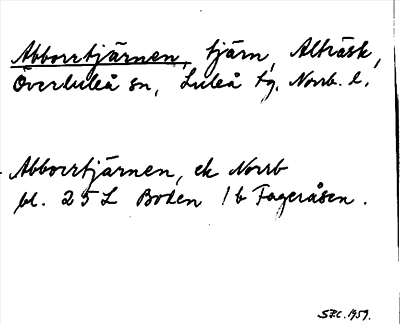 Abborrtjärnen, tjärn, Alträsk,
Överluleå sn, Luleå tg, Norrb. l.
Abborrtjärnen, ek Norrb
bl. 25 L Boden 1 b Fageråsen.
SFC. 1959.